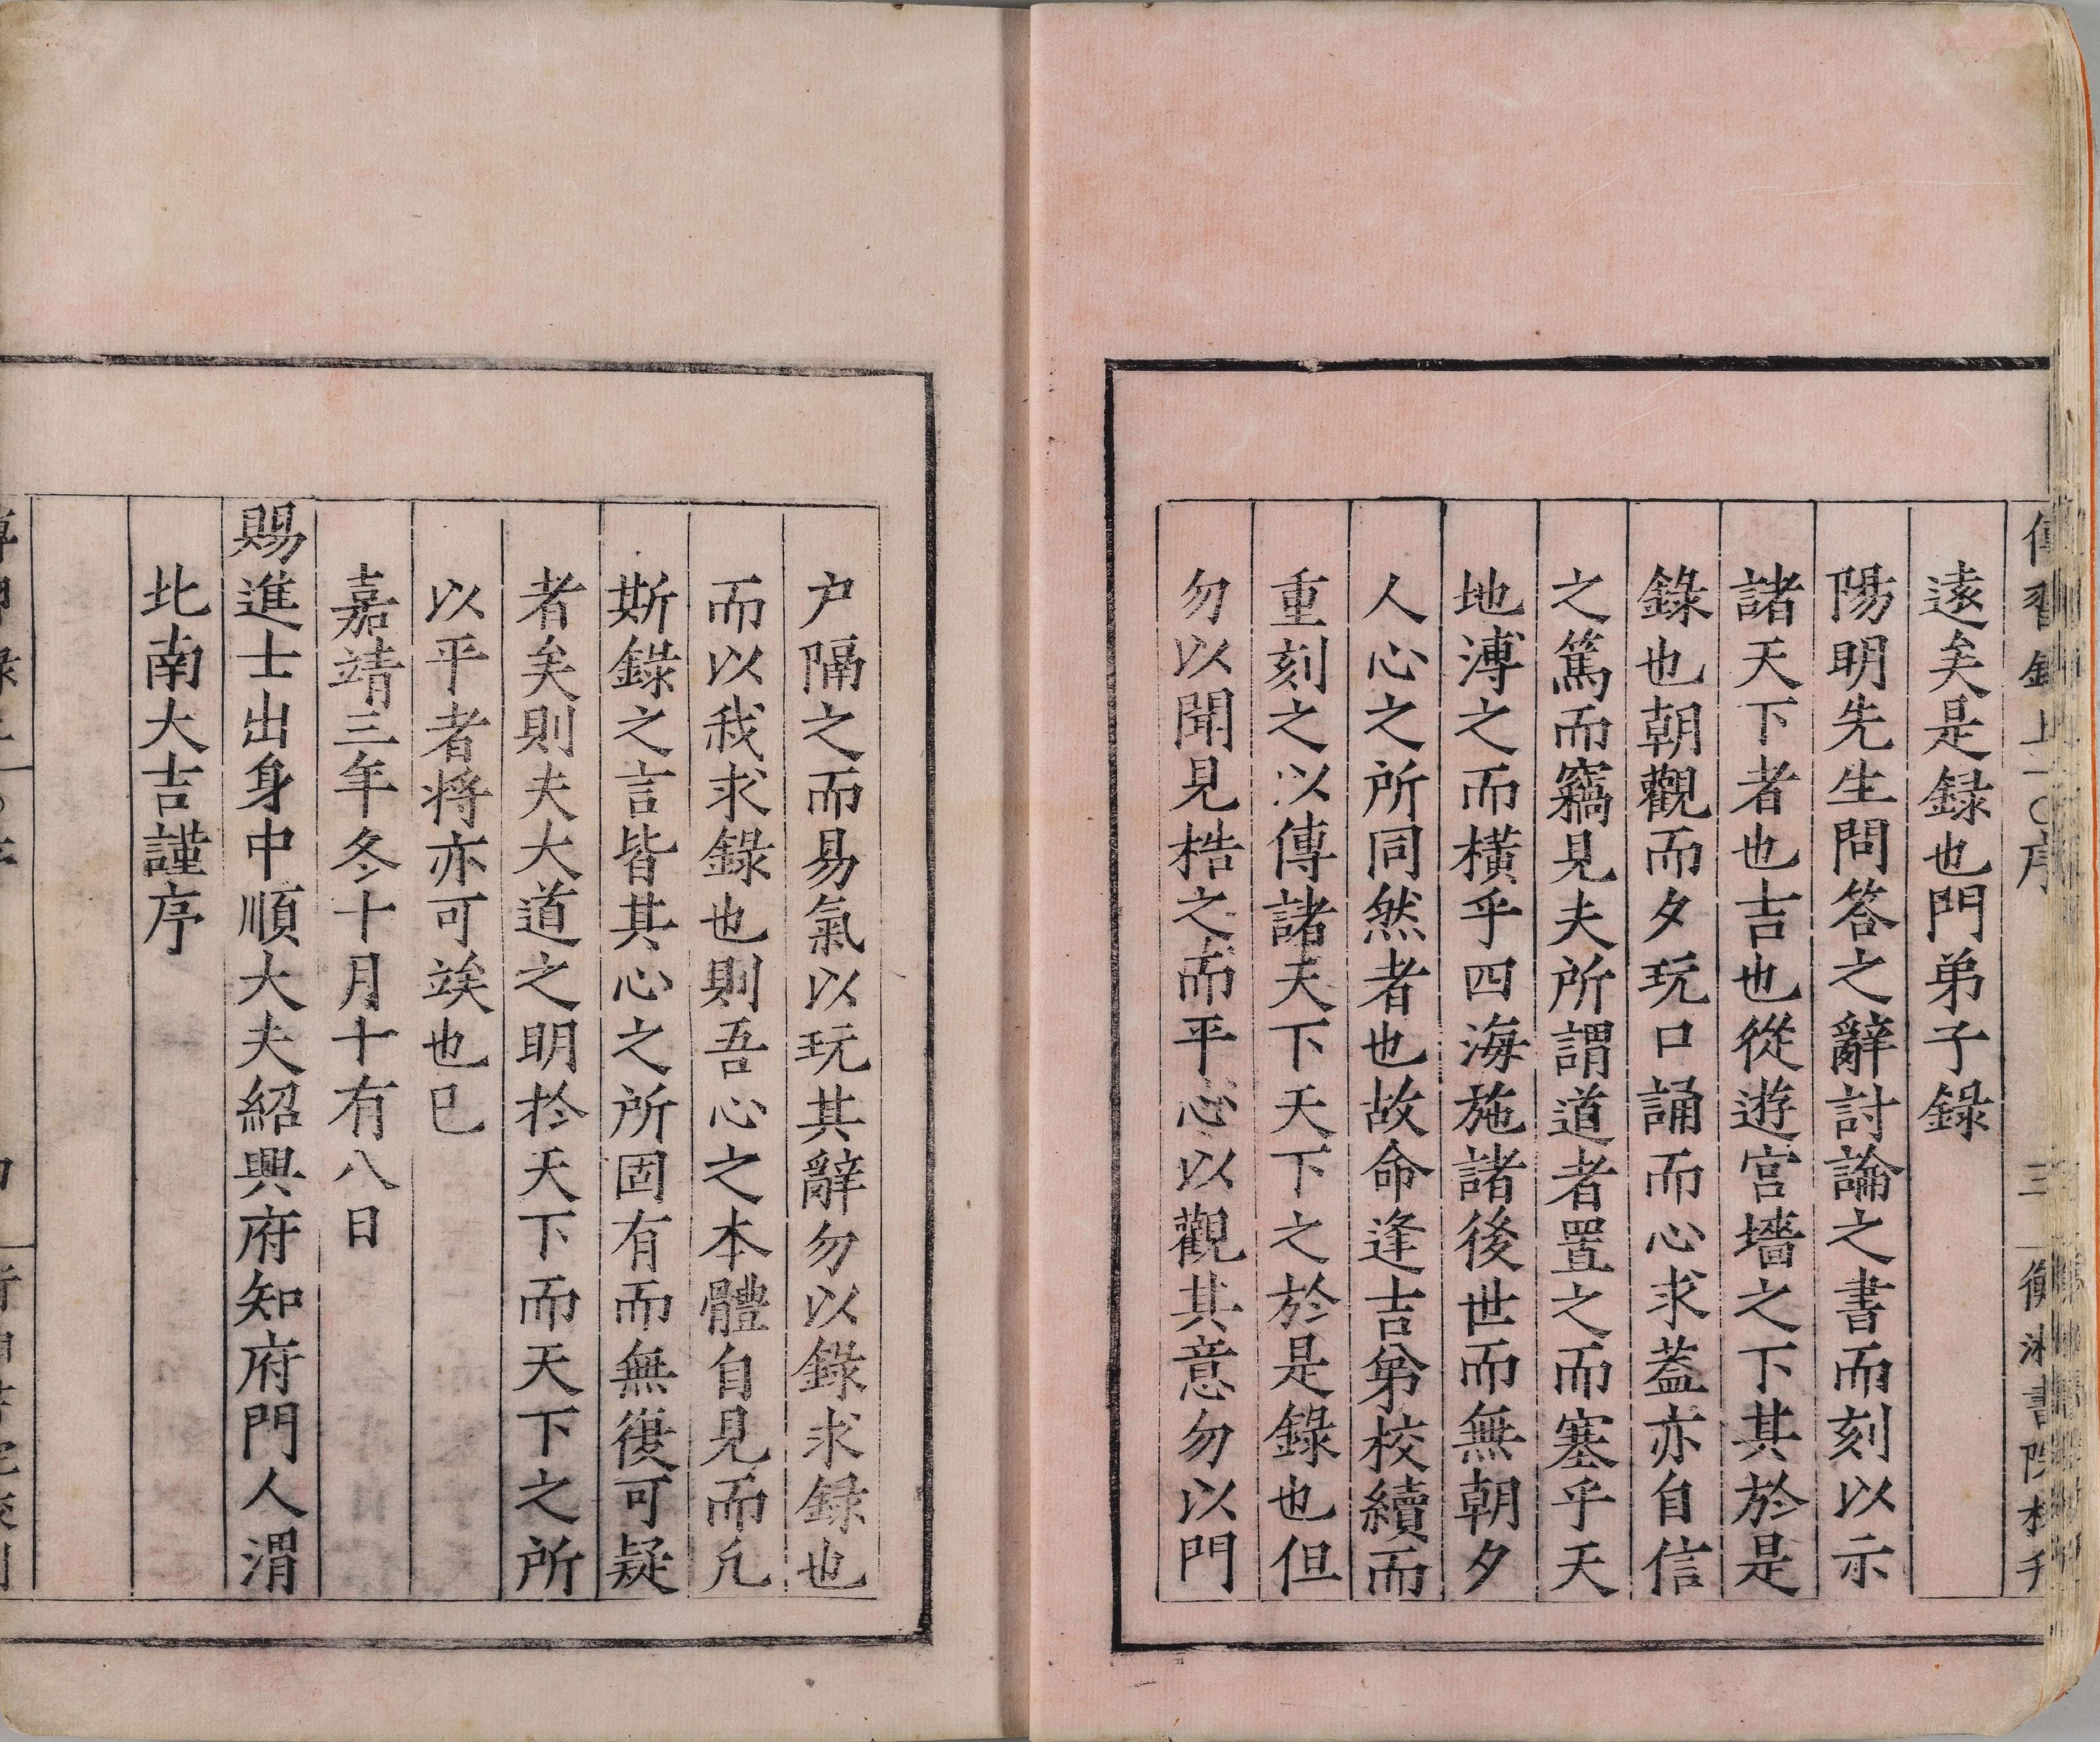 傳習錄上一〇序 三 衡湘書院
遠矣是録也門弟子錄
陽明先生問答之辭討論之書而刻以示
諸天下者也吉也從遊宫墻之下其於是
錄也朝觀而夕玩口誦而心求蓋亦自信
之篤而竊見夫所謂道者置之而塞乎天
地溥之而横乎四海施諸後世而無朝夕
人心之所同然者也故命逢吉弟校續而
重刻之以傳諸天下天下之於是錄也但
勿以聞見梏之而平心以觀其意勿以門
户隔之而易氣以玩其辭勿以錄求録也
而以我求錄也則吾心之本體自見而凡
斯錄之言皆其心之所固有而無復可疑
者矣則夫大道之明於天下而天下之所
以平者將亦可竢也已
嘉靖三年冬十月十有八日
賜進士出身中順大夫紹興府知府門人渭
北南大吉謹序